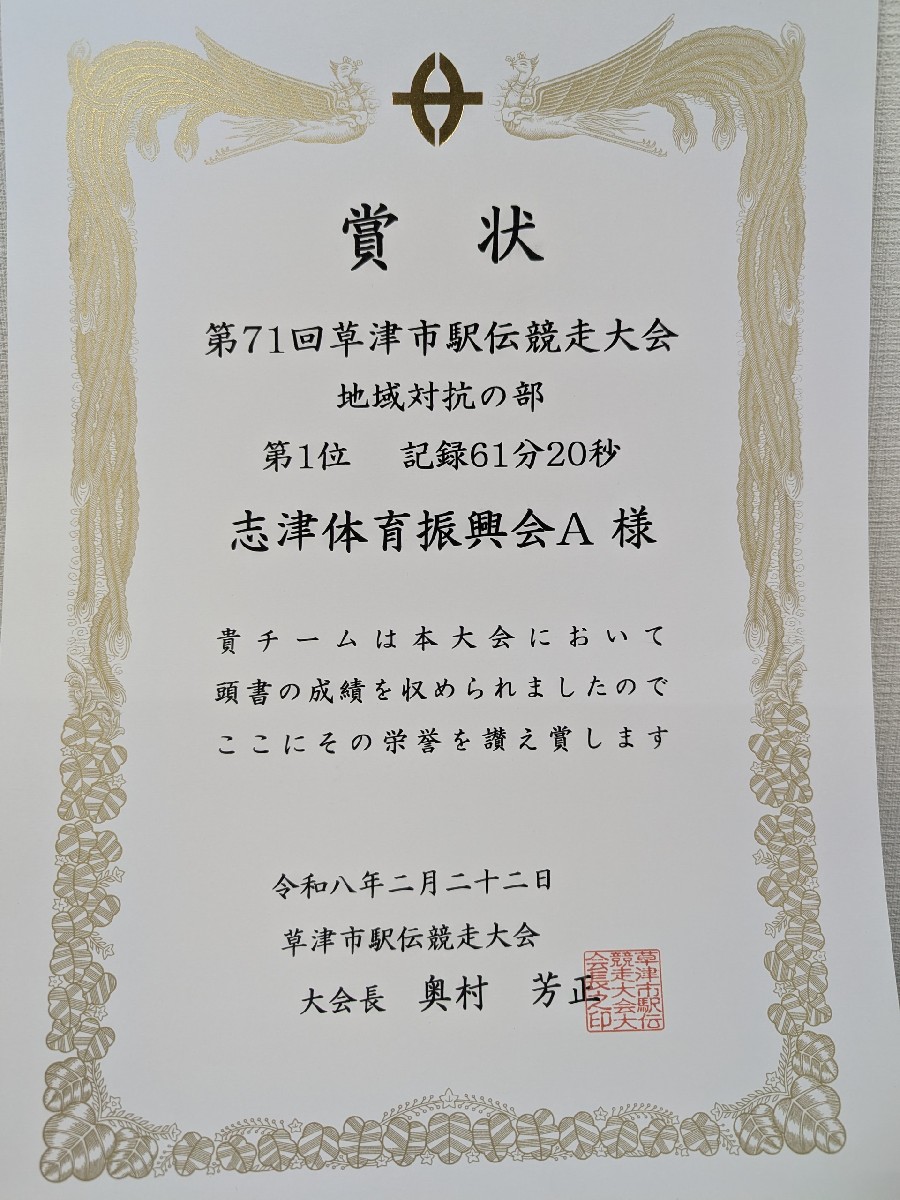 賞 状
第71回草津市駅伝競走大会
地域対抗の部
第1位 記録61分20秒
志津体育振興会A 様
貴チームは本大会において
頭書の成績を収められましたので
ここにその栄誉を讃え賞します
令和八年二月二十二日
草津市駅伝競走大会
大会長 奥村 芳正
草津市駅伝
競走大会大
会長之印